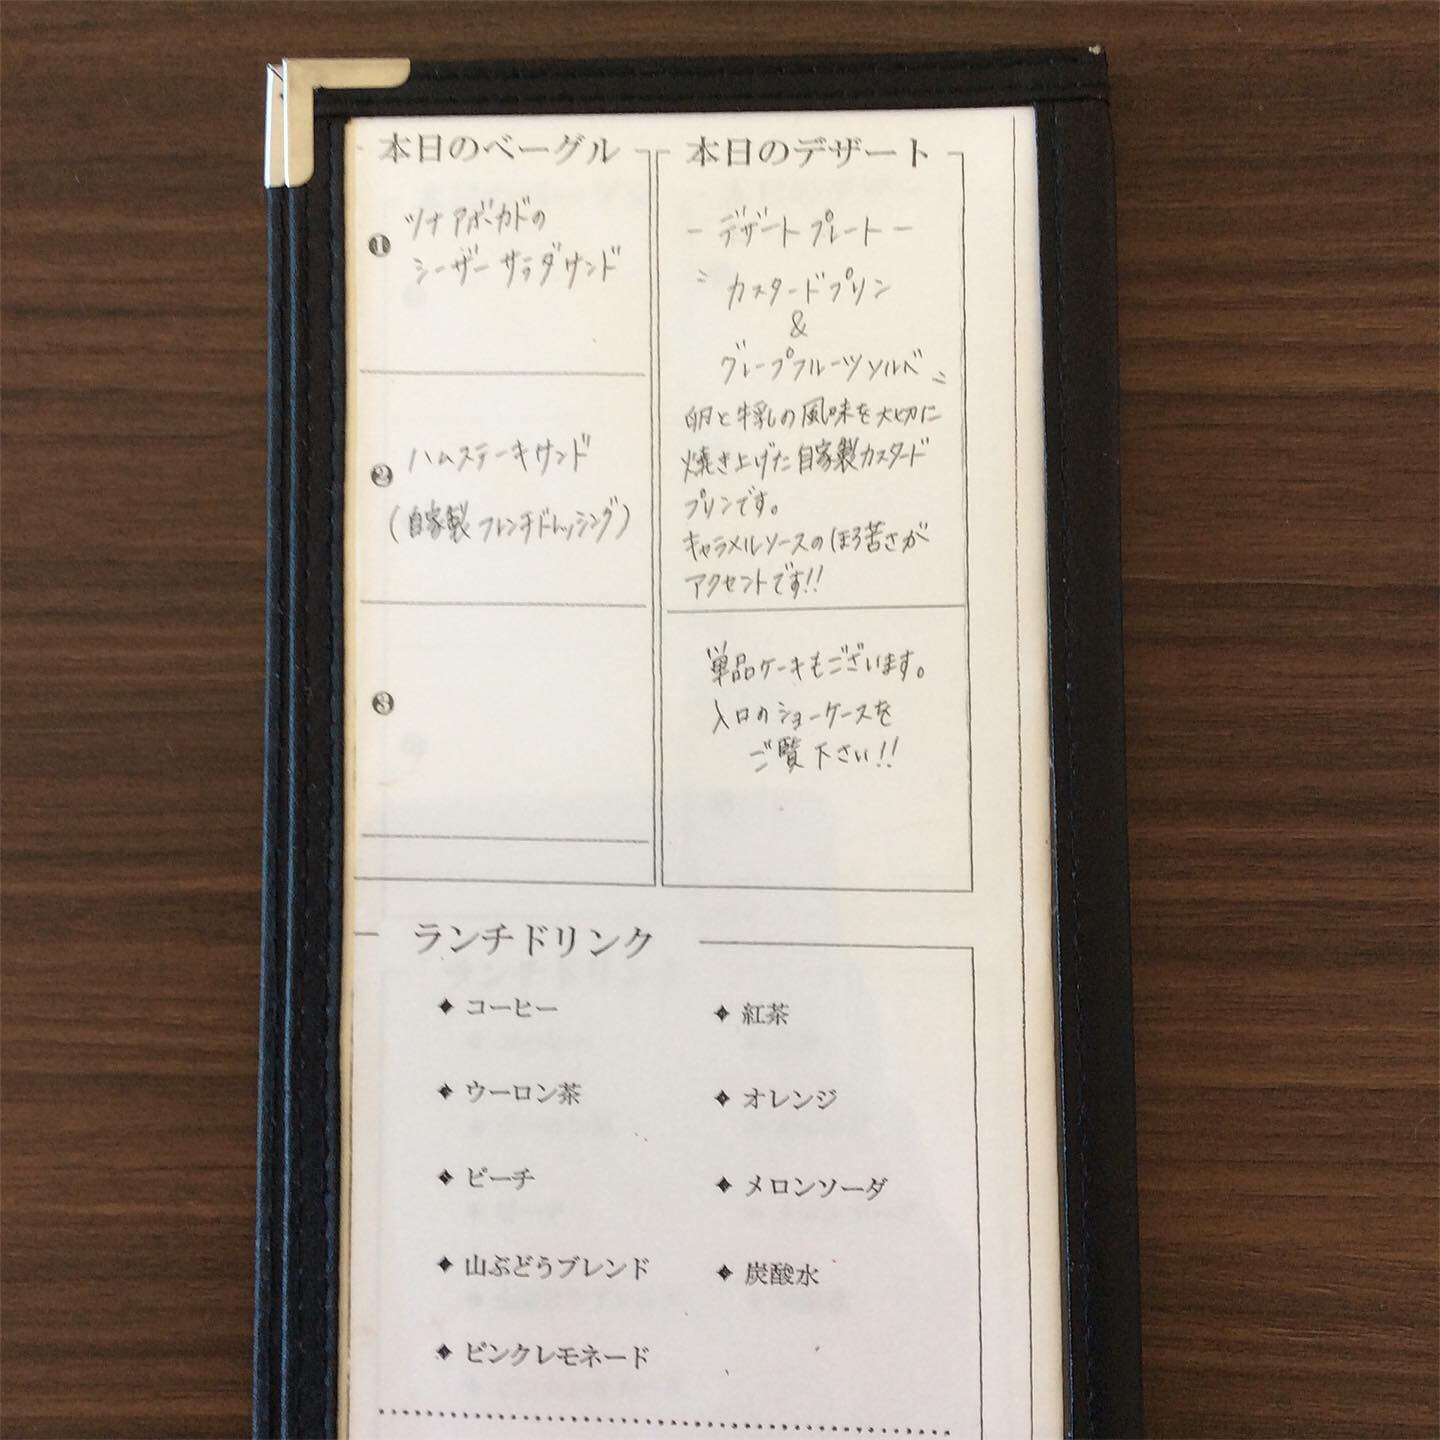 本日のベーグル
❶
ツナアボカドの
シーザーサラダサンド
❷
ハムステーキサンド
(自家製フレンチドレッシング)
❸
本日のデザート
ーデザートプレートー
〃カスタードプリン
&
グレープフルーツソルベ〃
卵と牛乳の風味を大切に
焼き上げた自家製カスタード
プリンです。
キャラメルソースのほろ苦さが
アクセントです!!
単品ケーキもございます。
入口のショーケースを
ご覧下さい!!
ランチドリンク
コーヒー
紅茶
ウーロン茶
オレンジ
ピーチ
メロンソーダ
山ぶどうブレンド
炭酸水
ピンクレモネード